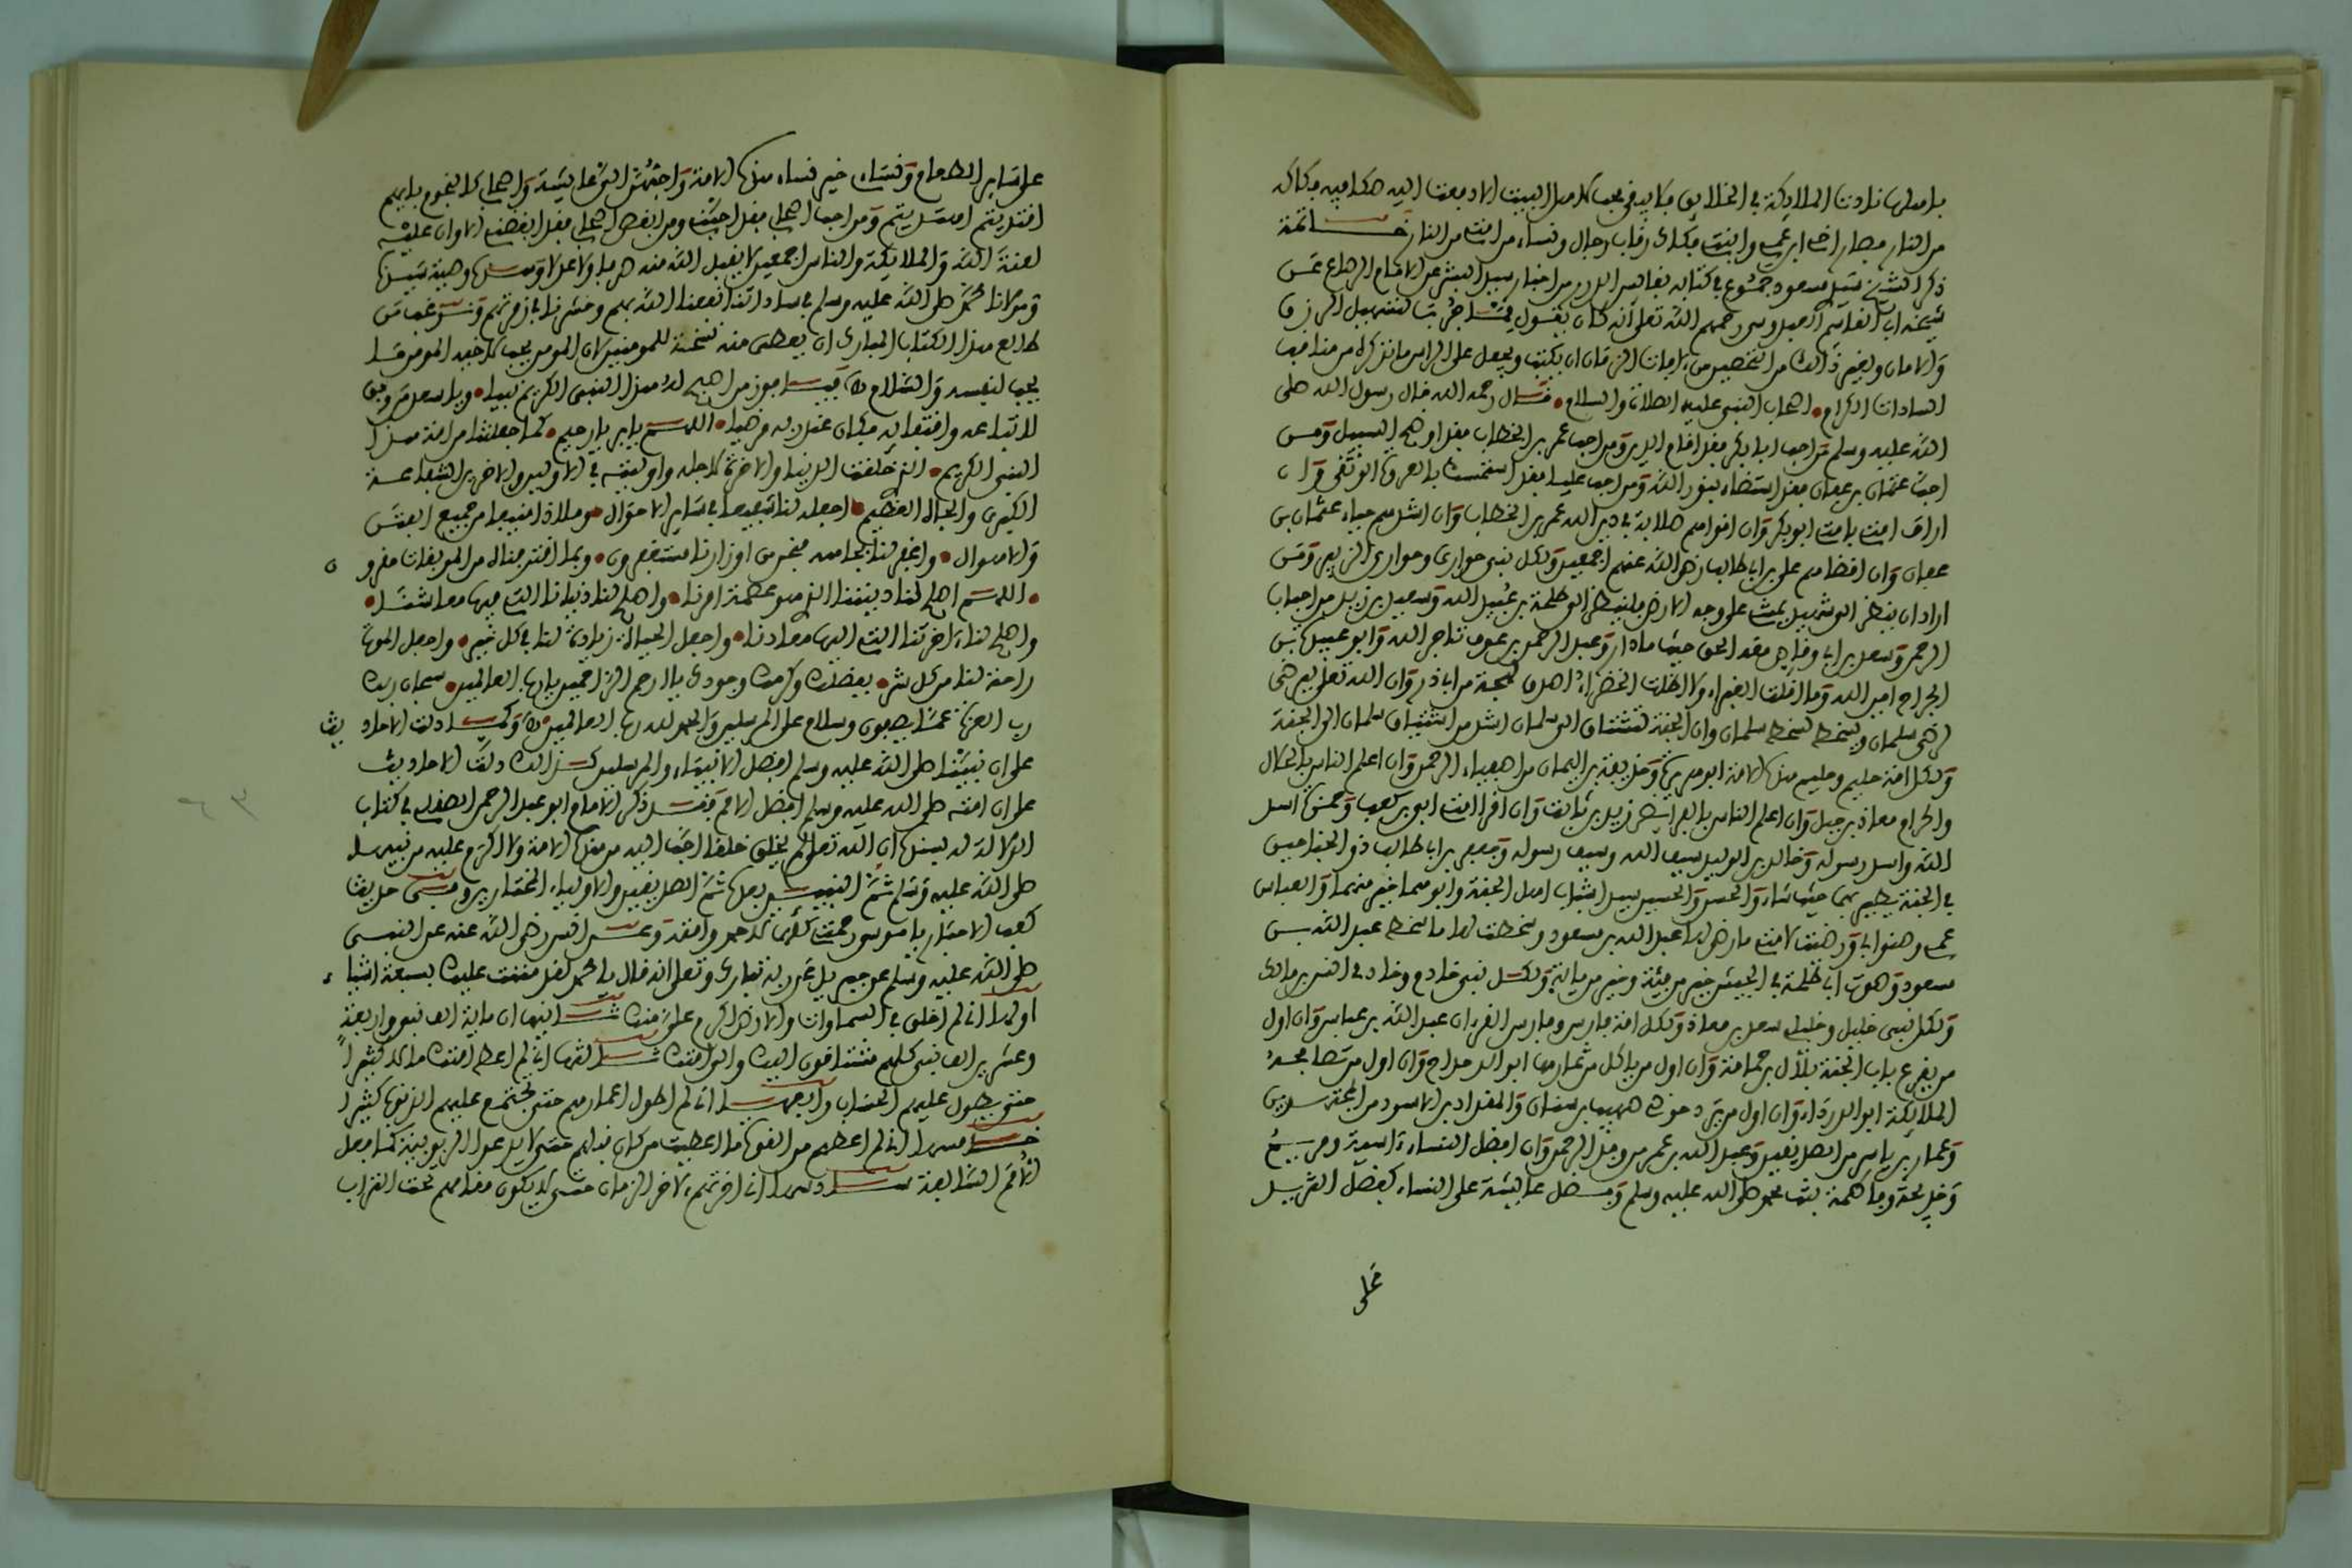 باهلها نادت الملائكة في الخلايق
من النار فصار ابن عمي وابنتي فكاك رقاب رجال ونساء من امتي من النار خاتمة
ذكر الشيخ سيد مسعود جموع في كتابه نفايس الدرر من اخبار سيد البشر عن الامام الرصاع عن
شيخه ابي القاسم العبدوسي رحمهم الله تعلى انه كان يقول مما جربت لتسهيل الرزق
والامان ولغير ذالك من التحصين من ءافات الزمان ان يكتب ويجعل على الراس ما نذكره من مناقب
السادات الكرام اصحاب النبي عليه الصلاة والسلام قال رحمه الله قال رسول الله صلى
الله عليه وسلم من احب ابا بكر فقد اقام الدين ومن احب عمر بن الخطاب فقد اوضح السبيل ومن
احب عثمان بن عفان فقد استضاء بنور الله ومن احب عليا فقد استمسك بالعروة الوثقى وان
اراف امتي بامتي ابو بكر وان اقواهم صلابة في دين الله عمر بن الخطاب وان اشدهم حياء عثمان بن
عفان وان اقضاهم علي بن ابي طالب رضي الله عنهم اجمعين ولكل نبي حواري وحواري الزبير ومن
اراد ان ينظر الى شهيد يمشي على وجه الارض فلينظر الى طلحة بن عبيد الله وسعيد بن زيد من احباب
الرحمن وسعد بن ابي وقاص مع الحق حيثما دار وعبد الرحمن بن عوف تاجر الله وابو عبيدة بن
الجراح امين الله وما اقلت الغبراء ولا اظلت الخضراء اصدق لهجة من ابي ذر وان الله تعلى يرضى
لرضى سلمان ويسخط لسخط سلمان وان الجنة تشتاق الى سلمان اشد من اشتياق سلمان الى الجنة
ولكل امة حكيم وحكيم هذه الامة ابو هريرة وحذيفة بن اليمان من اصفياء الرحمن وان اعلم الناس بالحلال
والحرام معاذ بن جبل وان اعلم الناس بالفرائض زيد بن ثابت وان اقرا امتي ابي بن كعب وحمزة اسد
الله واسد رسوله وخالد بن الوليد سيف الله وسيف رسوله وجعفر بن ابي طالب ذو الجناحين
في الجنة يطير بهما حيث شاء والحسن والحسين سيدا شباب اهل الجنة وابوهما خير منهما والعباس
عمي وصنو ابي ورضيت لامتي ما رضي لها عبد الله بن مسعود وسخطت لها ما سخط عبد الله بن
مسعود وصوت ابي طلحة في الجيش خير من فئة ولكل نبي خادم وخادمي انس بن مالك
ولكل نبي خليل وخليلي سعد بن معاذ ولكل امة فارس وفارس القرءان عبد الله بن عباس وان اول
من يقرع باب الجنة بلال بن حمامة وان اول من ياكل من ثمارها ابو الدحداح وان اول من تصافحه
الملائكة ابو الدرداء وان اول من يرد حوضي صهيب بن سنان والمقداد بن الاسود من المجتهدين
وعمار بن ياسر من الصديقين وعبد الله بن عمر من وفد الرحمن وان افضل النساء ءاسية ومريم
وخديجة وفاطمة بنت محمد صلى الله عليه وسلم وفضل عائشة على النساء كفضل الثريد
على
على ساير الطعام ونساءي خير نساء هذه الامة واحبهن الي عائشة واصحابي كالنجوم بايهم
اقتديتم اهتديتم ومن احب اصحابي فقد احبني ومن ابغض اصحابي فقد ابغضني الا وان عليه
لعنة الله والملائكة والناس اجمعين لا يقبل الله منه صرفا ولا عدلا
ومولانا محمد صلى الله عليه وسلم في ساداتنا نفعنا الله بهم وحشرنا في زمرتهم
طالع هذا الكتاب المبارك ان يعطي منه نسخة للمومنين لان المومن يحب لاخيه المومن ما
يحب لنفسه والسلام فيا فوز من اضحى له هذا النبي الكريم نبيا ويا سعد من وفق
لاتباعه واقتفايه فكان عند ربه مرضيا اللهم يا بر يا رحيم كما جعلتنا من امة هذا
النبي الكريم الذي خلقت الدنيا والاخرة لاجله واوليته في الاولين والاخرين الشفاعة
الكبرى والجاه العظيم اجعله لنا شفيعا في ساير الاحوال وملاذا منيعا من جميع الفتن
والاهوال واغفر لنا بجاهه فنحن من اوزارنا مستغفرون وبما اقترفناه من الموبقات مقرون
اللهم اصلح لنا ديننا الذي هو عصمة امرنا واصلح لنا دنيانا التي فيها معاشنا
واصلح لنا ءاخرتنا التي اليها معادنا واجعل الحياة زيادة لنا في كل خير واجعل الموت
راحة لنا من كل شر بفضلك وكرمك وجودك يا ارحم الراحمين يا رب العالمين سبحان ربك
رب العزة عما يصفون وسلام على المرسلين والحمد لله رب العالمين وكما دلت الاحاديث
على ان نبينا صلى الله عليه وسلم افضل الانبياء والمرسلين كذالك دلت الاحاديث
على ان امته صلى الله عليه وسلم افضل الامم فقد ذكر الامام ابو عبد الرحمن الصقلي في كتاب
الدلالة له بسنده ان الله تعلى لم يخلق خلقا احب اليه من هذه الامة ولا اكرم عليه من نبيها
صلى الله عليه وسلم ثم النبيين بعده ثم الصديقين والاولياء المختارين وفي حديث
كعب الاحبار يا موسى رحمتي لاحمد وامته وعن انس رضي الله عنه عن النبي
صلى الله عليه وسلم عن جبريل عن ربه تبارك وتعلى انه قال يا محمد لقد مننت عليك بسبعة اشياء
اولها اني لم اخلق في السماوات والارض اكرم علي منك ثانيها ان ماية الف نبي واربعة
وعشرين الف نبي كلهم مشتاقون اليك والى امتك ثالثها اني لم اعط امتك مالا كثيرا
حتى يطول عليهم الحساب رابعها اني لم اطول اعمارهم حتى تجتمع عليهم الذنوب كثيرا
خامسها اني لم اعطهم من القوة ما اعطيت من كان قبلهم حتى لا يدعوا الربوبية كما فعل
الامم السالفة سادسها اني اخرجتهم ءاخر الزمان حتى لا يكون مقامهم تحت التراب